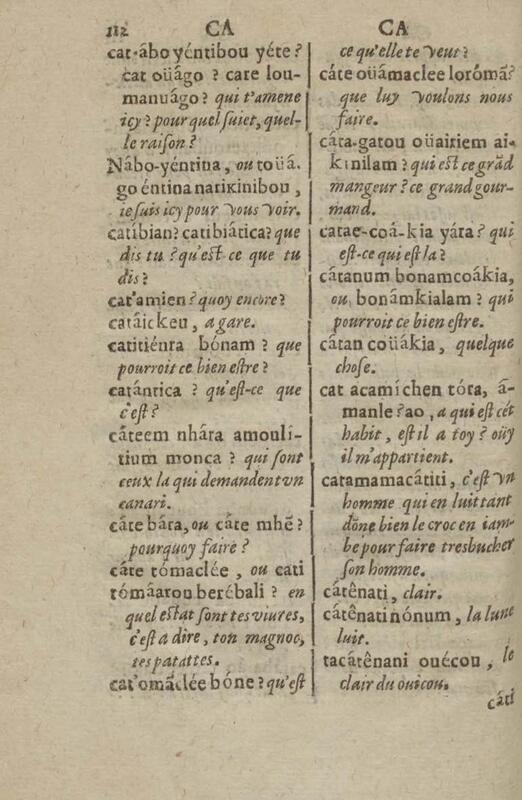 112 CA CA
cat-ábo yéntibou yéte?
cat oüágo? care lou-
manuágo? qui t'amene
icy? pour quel suiet, quel-
le raison?
Nábo-yéntina, ou toüá-
go éntina narikinibou,
ie suis icy pour vous voir.
catíbian? catibiática? que
dis tu? qu'est ce que tu
dis?
cat'amien? quoy encore?
catáickeu, agare.
catitiénra bónam? que
pourroit ce bien estre?
catántica? qu'est-ce que
c'est?
cáteem nhára amouli-
tium monca? qui sont
ceux la qui demandent vn
canari.
cáte bára, ou cáte mhẽ?
pourquoy faire?
cáte tómaclée, ou cati
tómâarou berébali? en
quel estat sont tes viures,
c'est a dire, ton magnoc,
tes patattes.
cat'omãclée bóne? qu'est
ce qu'elle te veut?
cáte oüámaclee lorómã?
que luy voulons nous
faire.
cáta-gatou oüairiem ai-
kinilam? qui est ce grãd
mangeur? ce grand gour-
mand.
catae-coá-kia yáta? qui
est-ce qui est la?
cátanum bonamcoákia,
ou, bonámkialam? qui
pourroit ce bien estre.
cátan coüákia, quelque
chose.
cat acamíchen tóra, â-
manle? ao, a qui est cét
habit, est il a toy? oüy
il m'appartient.
catamamacátiti, c'est vn
homme qui en luittant
dõne bien le croc en iam-
be pour faire tresbucher
son homme.
cátênati, clair.
cátênati nónum, la lune
luit.
tacátênani ouécou, le
clair du ouicou.
cáti